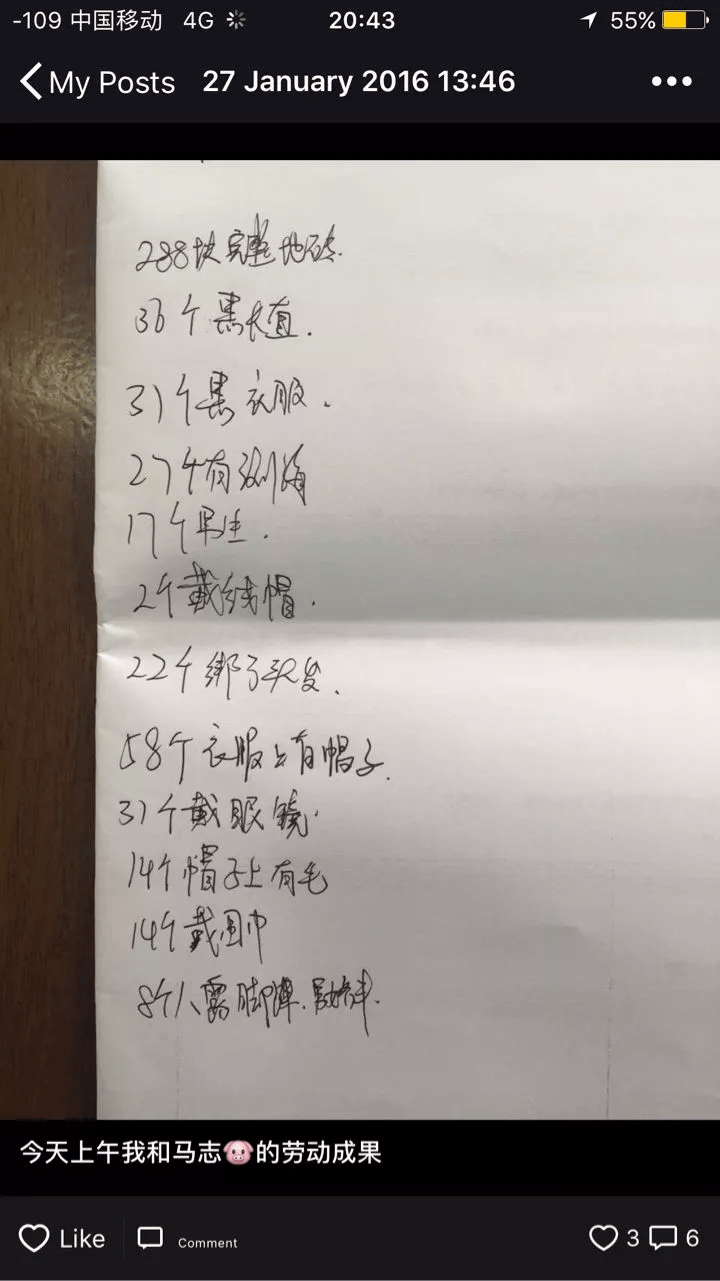 -109 中国移动 4G 20:43 55%
My Posts 27 January 2016 13:46
288块完整地砖.
36个黑长直.
31个黑衣服.
27个有刘海
17个男生.
2个戴线帽.
22个绑了头发.
58个衣服上有帽子.
31个戴眼镜.
14个帽子上有毛
14个戴围巾
8个人露脚踝.男女各半.
今天上午我和马志🐷的劳动成果
Like Comment 3 6